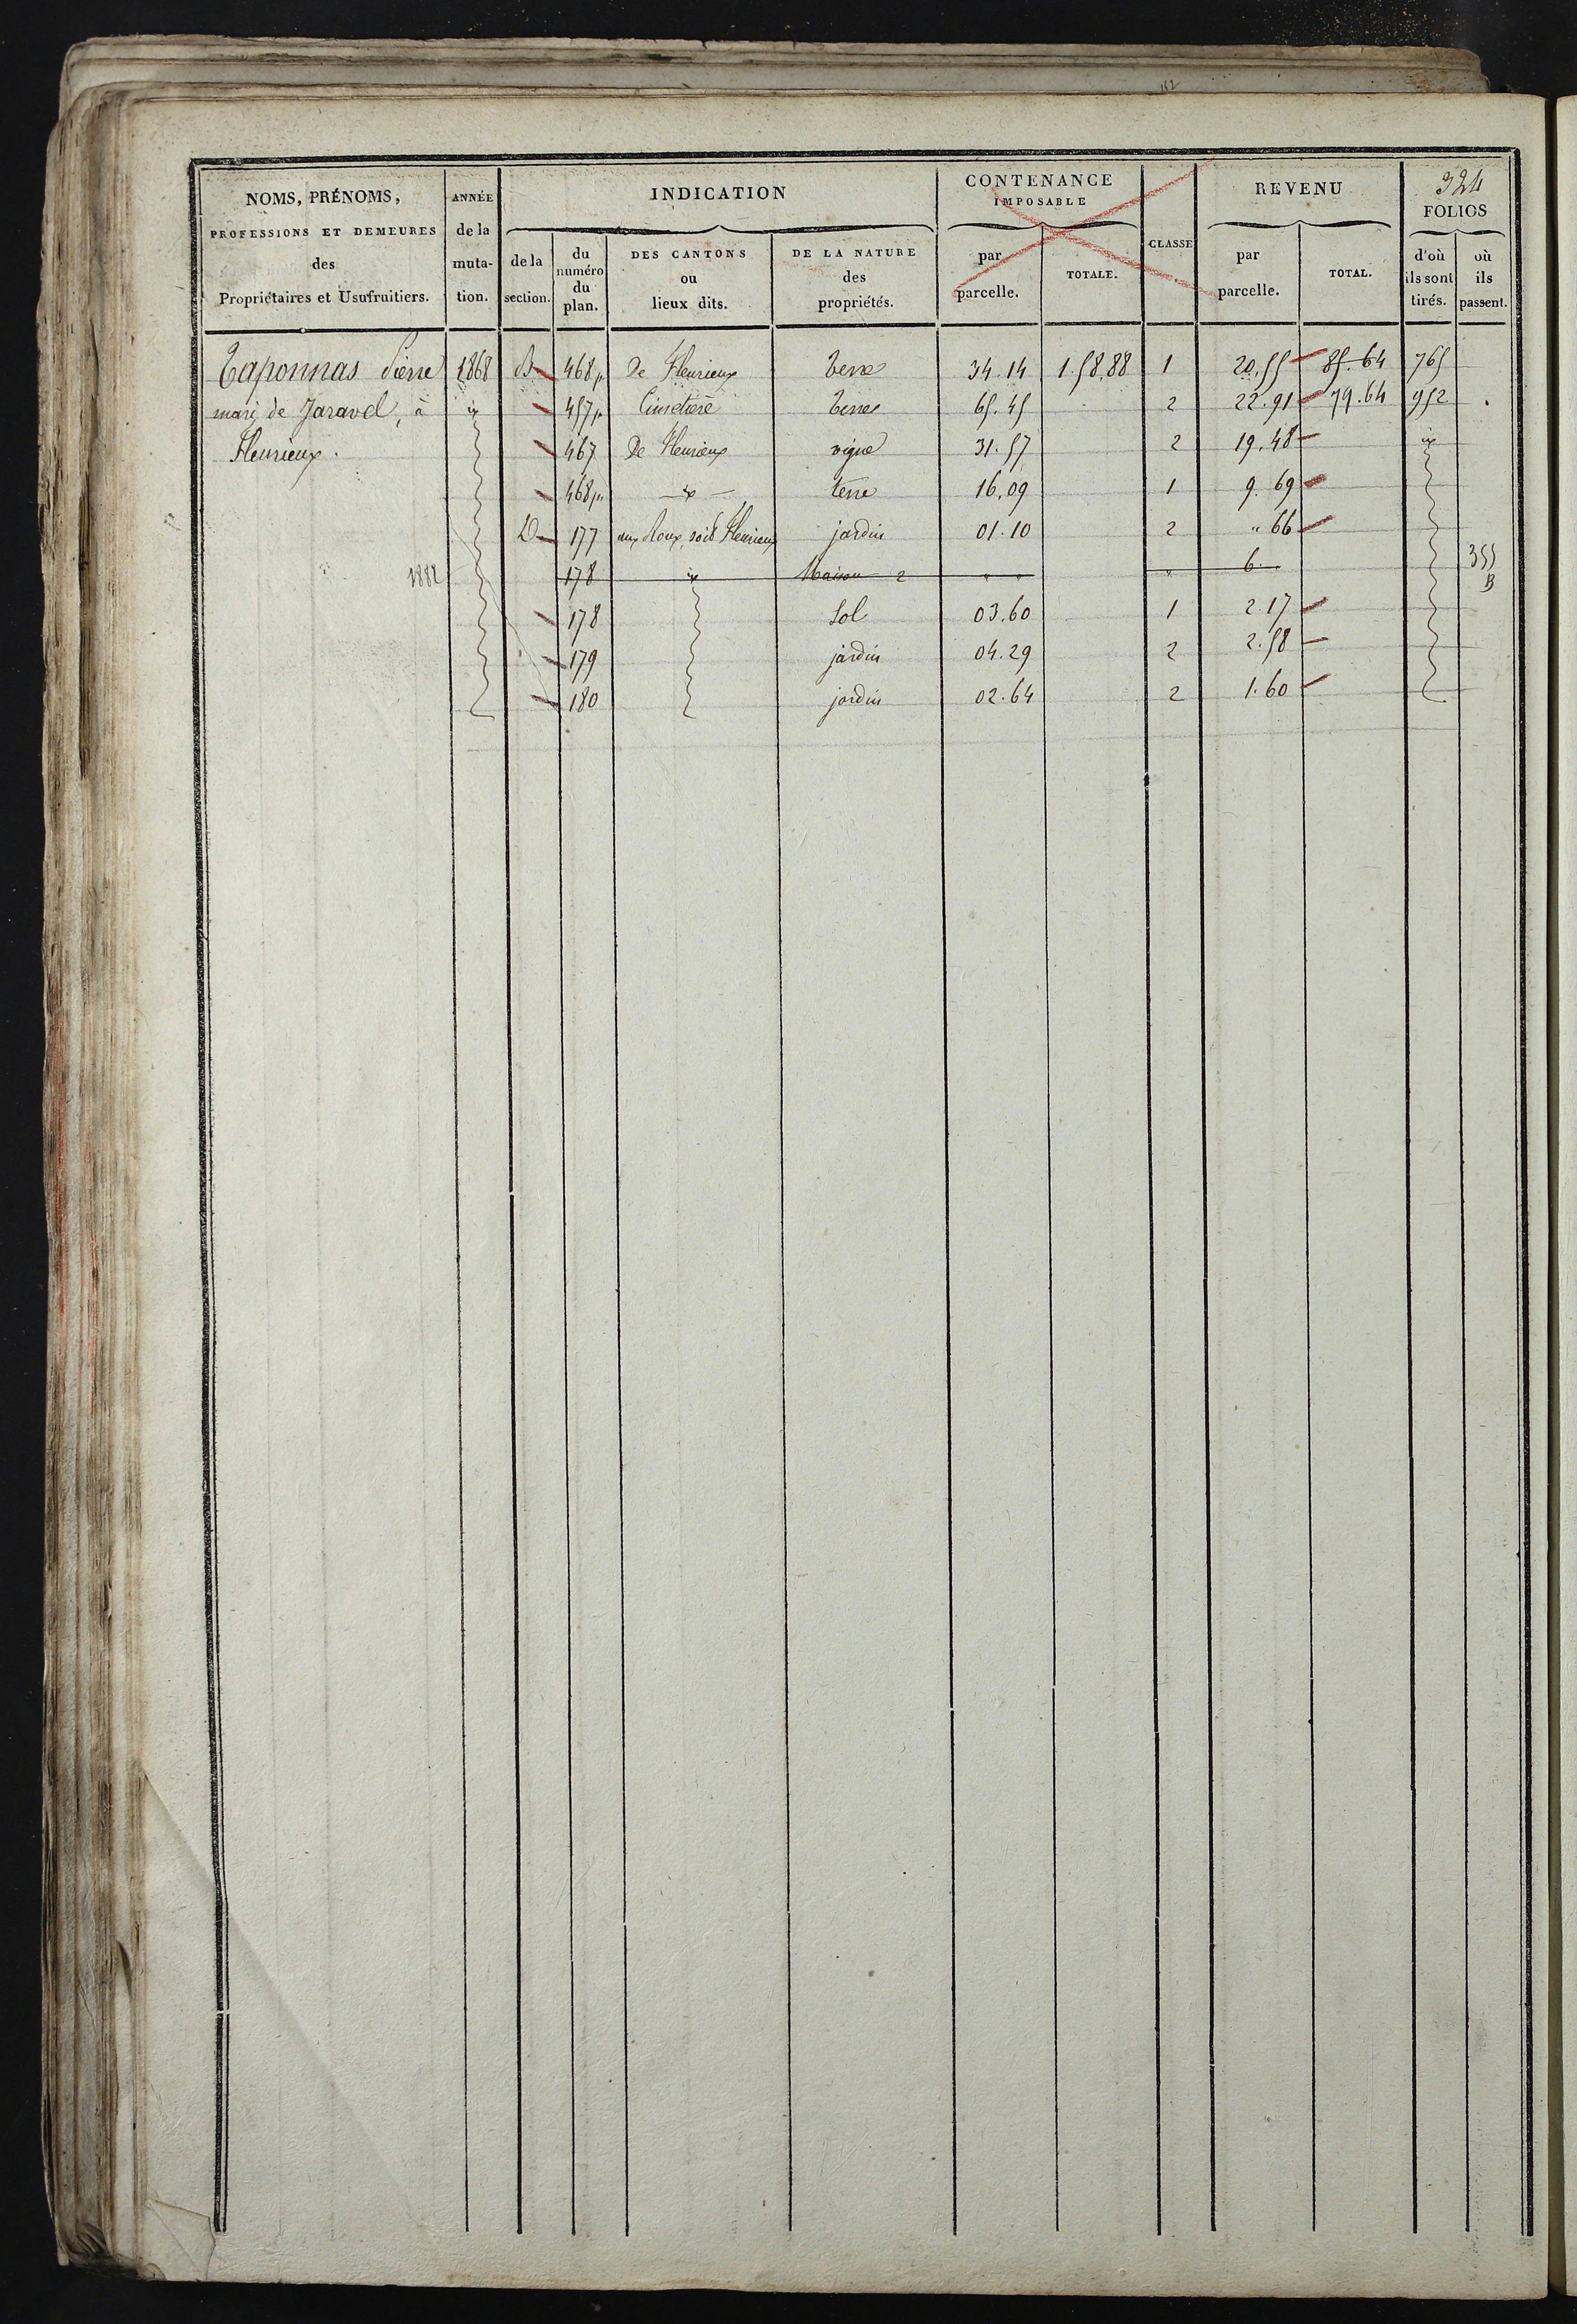 324
NOMS, PRÉNOMS, PROFESSIONS ET DEMEURES des Propriétaires et Usufruitiers.
ANNÉE de la muta-tion.
INDICATION
de la section.
du numéro du plan.
DES CANTONS ou lieux dits.
DE LA NATURE des propriétés.
CONTENANCE IMPOSABLE
par parcelle.
TOTALE.
CLASSE
REVENU
par parcelle.
TOTAL.
FOLIOS
d'où ils sont tirés.
où ils passent.
Taponnas Pierre 1868 B 468p De Fleurieux terre 34.14 1.58.88 1 20.55 85.64 765
mari de Jaravel, à id 457p Cimetière terre 65.45 2 22.91 79.64 952
Fleurieux. 467 De Fleurieux vigne 31.57 2 19.48 id
468p id terre 16.09 1 9.69
D 177 soit Fleurieux jardin 01.10 2 " 66
1882 178 id Maison 2 " " " 6. 355 B
178 Sol 03.60 1 2.17
179 jardin 04.29 2 2.58
180 jardin 02.64 2 1.60